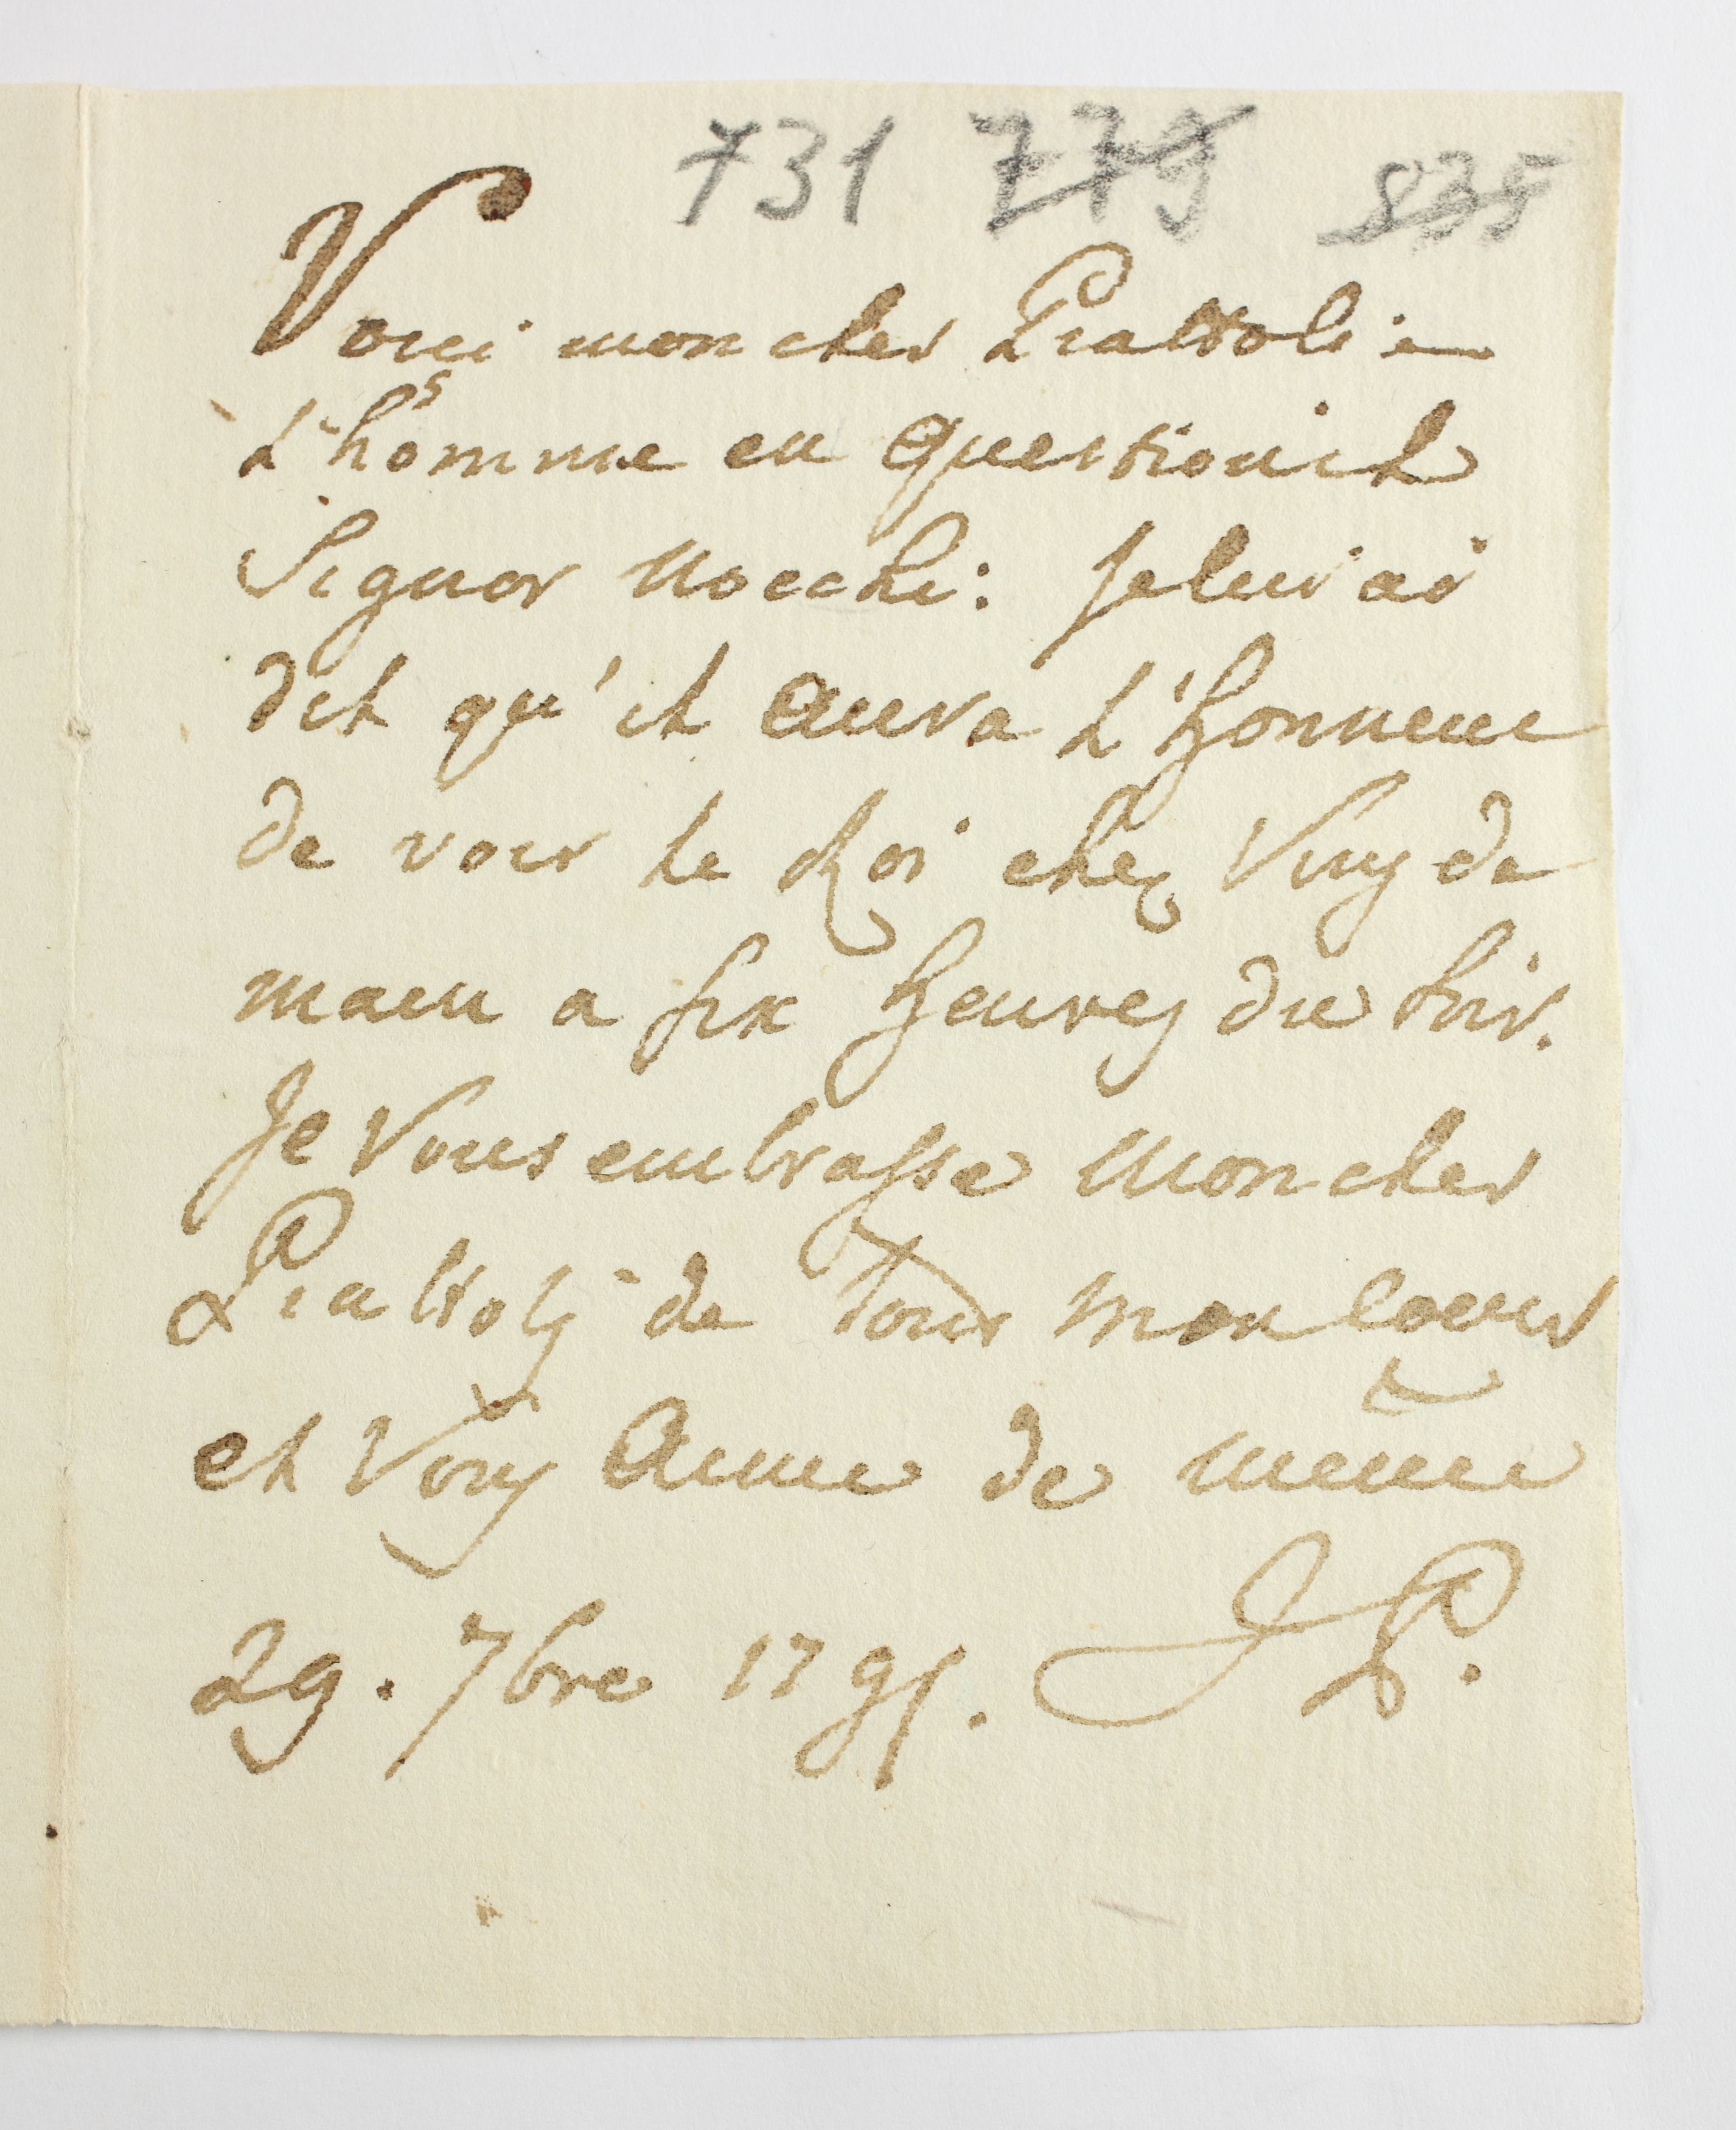 731 779 835
Voici mon cher Piattoli
L'homme en question il
Signor Mocchi: Je lui ai
dit qu'il aura L'honneur
de voir le Roi chez Vous de
main a six heures du soir.
Je Vous embrasse mon cher
Piattoly de tout mon coeur
et Vous aime de même
29. 7bre 1791. JP.